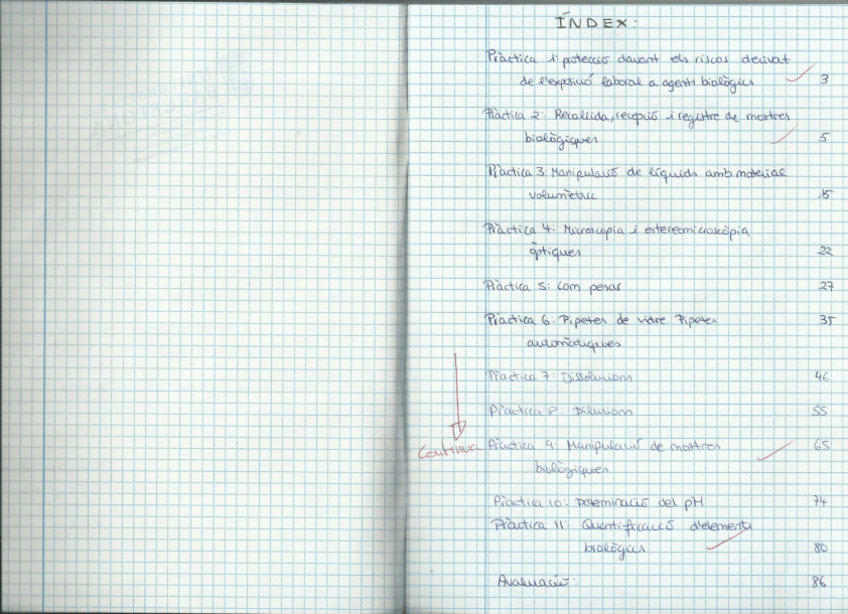 ÍNDEX:
Pràctica 1: protecció davant els riscos derivat
de l'exposició laboral a agents biològics 3
Pràctica 2: Recollida, recepció i registre de mostres
biològiques 5
Pràctica 3: Manipulació de líquids amb material
volumètric 15
Pràctica 4: Microscopia i estereomicroscòpia
òptiques 22
Pràctica 5: Com pesar 27
Pràctica 6: Pipetes de vidre. Pipetes 35
automàtiques
Pràctica 7: Dissolucions 46
Pràctica 8: Dilucions 55
Continua Pràctica 9: Manipulació de mostres 65
biològiques
Pràctica 10: Determinació del pH 74
Pràctica 11: Quantificació d'elements
biològics 80
Avaluació: 86